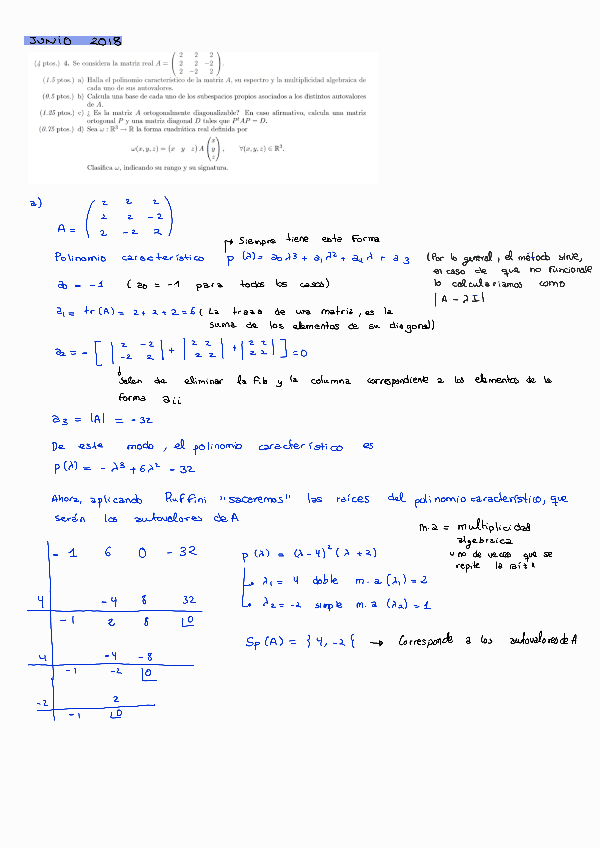 JUNIO 2018
(4 ptos.) 4. Se considera la matriz real A = ( 2 2 2 / 2 2 −2 / 2 −2 2 ).
(1.5 ptos.) a) Halla el polinomio característico de la matriz A, su espectro y la multiplicidad algebraica de
cada uno de sus autovalores.
(0.5 ptos.) b) Calcula una base de cada uno de los subespacios propios asociados a los distintos autovalores
de A.
(1.25 ptos.) c) ¿ Es la matriz A ortogonalmente diagonalizable? En caso afirmativo, calcula una matriz
ortogonal P y una matriz diagonal D tales que PᵗAP = D.
(0.75 ptos.) d) Sea ω : ℝ³ → ℝ la forma cuadrática real definida por
ω(x, y, z) = (x y z) A (x / y / z), ∀(x, y, z) ∈ ℝ³.
Clasifica ω, indicando su rango y su signatura.
a)
A = ( 2 2 2 / 2 2 −2 / 2 −2 2 )
→ Siempre tiene esta forma
Polinomio característico p(λ) = a₀λ³ + a₁λ² + a₂λ + a₃
(Por lo general, el método sirve,
en caso de que no funcionale
lo calcularíamos como
|A − λI|)
a₀ = −1 (a₀ = −1 para todos los casos)
a₁ = tr(A) = 2 + 2 + 2 = 6 (La traza de una matriz, es la
suma de los elementos de su diagonal)
a₂ = − [ |2 −2 / −2 2| + |2 2 / 2 2| + |2 2 / 2 2| ] = 0
Salen de eliminar la fila y la columna correspondiente a los elementos de la
forma aii
a₃ = |A| = −32
De este modo, el polinomio característico es
p(λ) = −λ³ + 6λ² − 32
Ahora, aplicando Ruffini "sacaremos" las raíces del polinomio característico, que
serán los autovalores de A
m.a = multiplicidad
algebraica
nº de veces que se
repite la raíz
−1 6 0 −32
4 −4 8 32
−1 2 8 0
4 −4 −8
−1 −2 0
−2 2
−1 0
p(λ) = (λ−4)²(λ+2)
λ₁ = 4 doble m.a(λ₁) = 2
λ₂ = −2 simple m.a(λ₂) = 1
Sp(A) = }4, −2{ → Corresponde a los autovalores de A